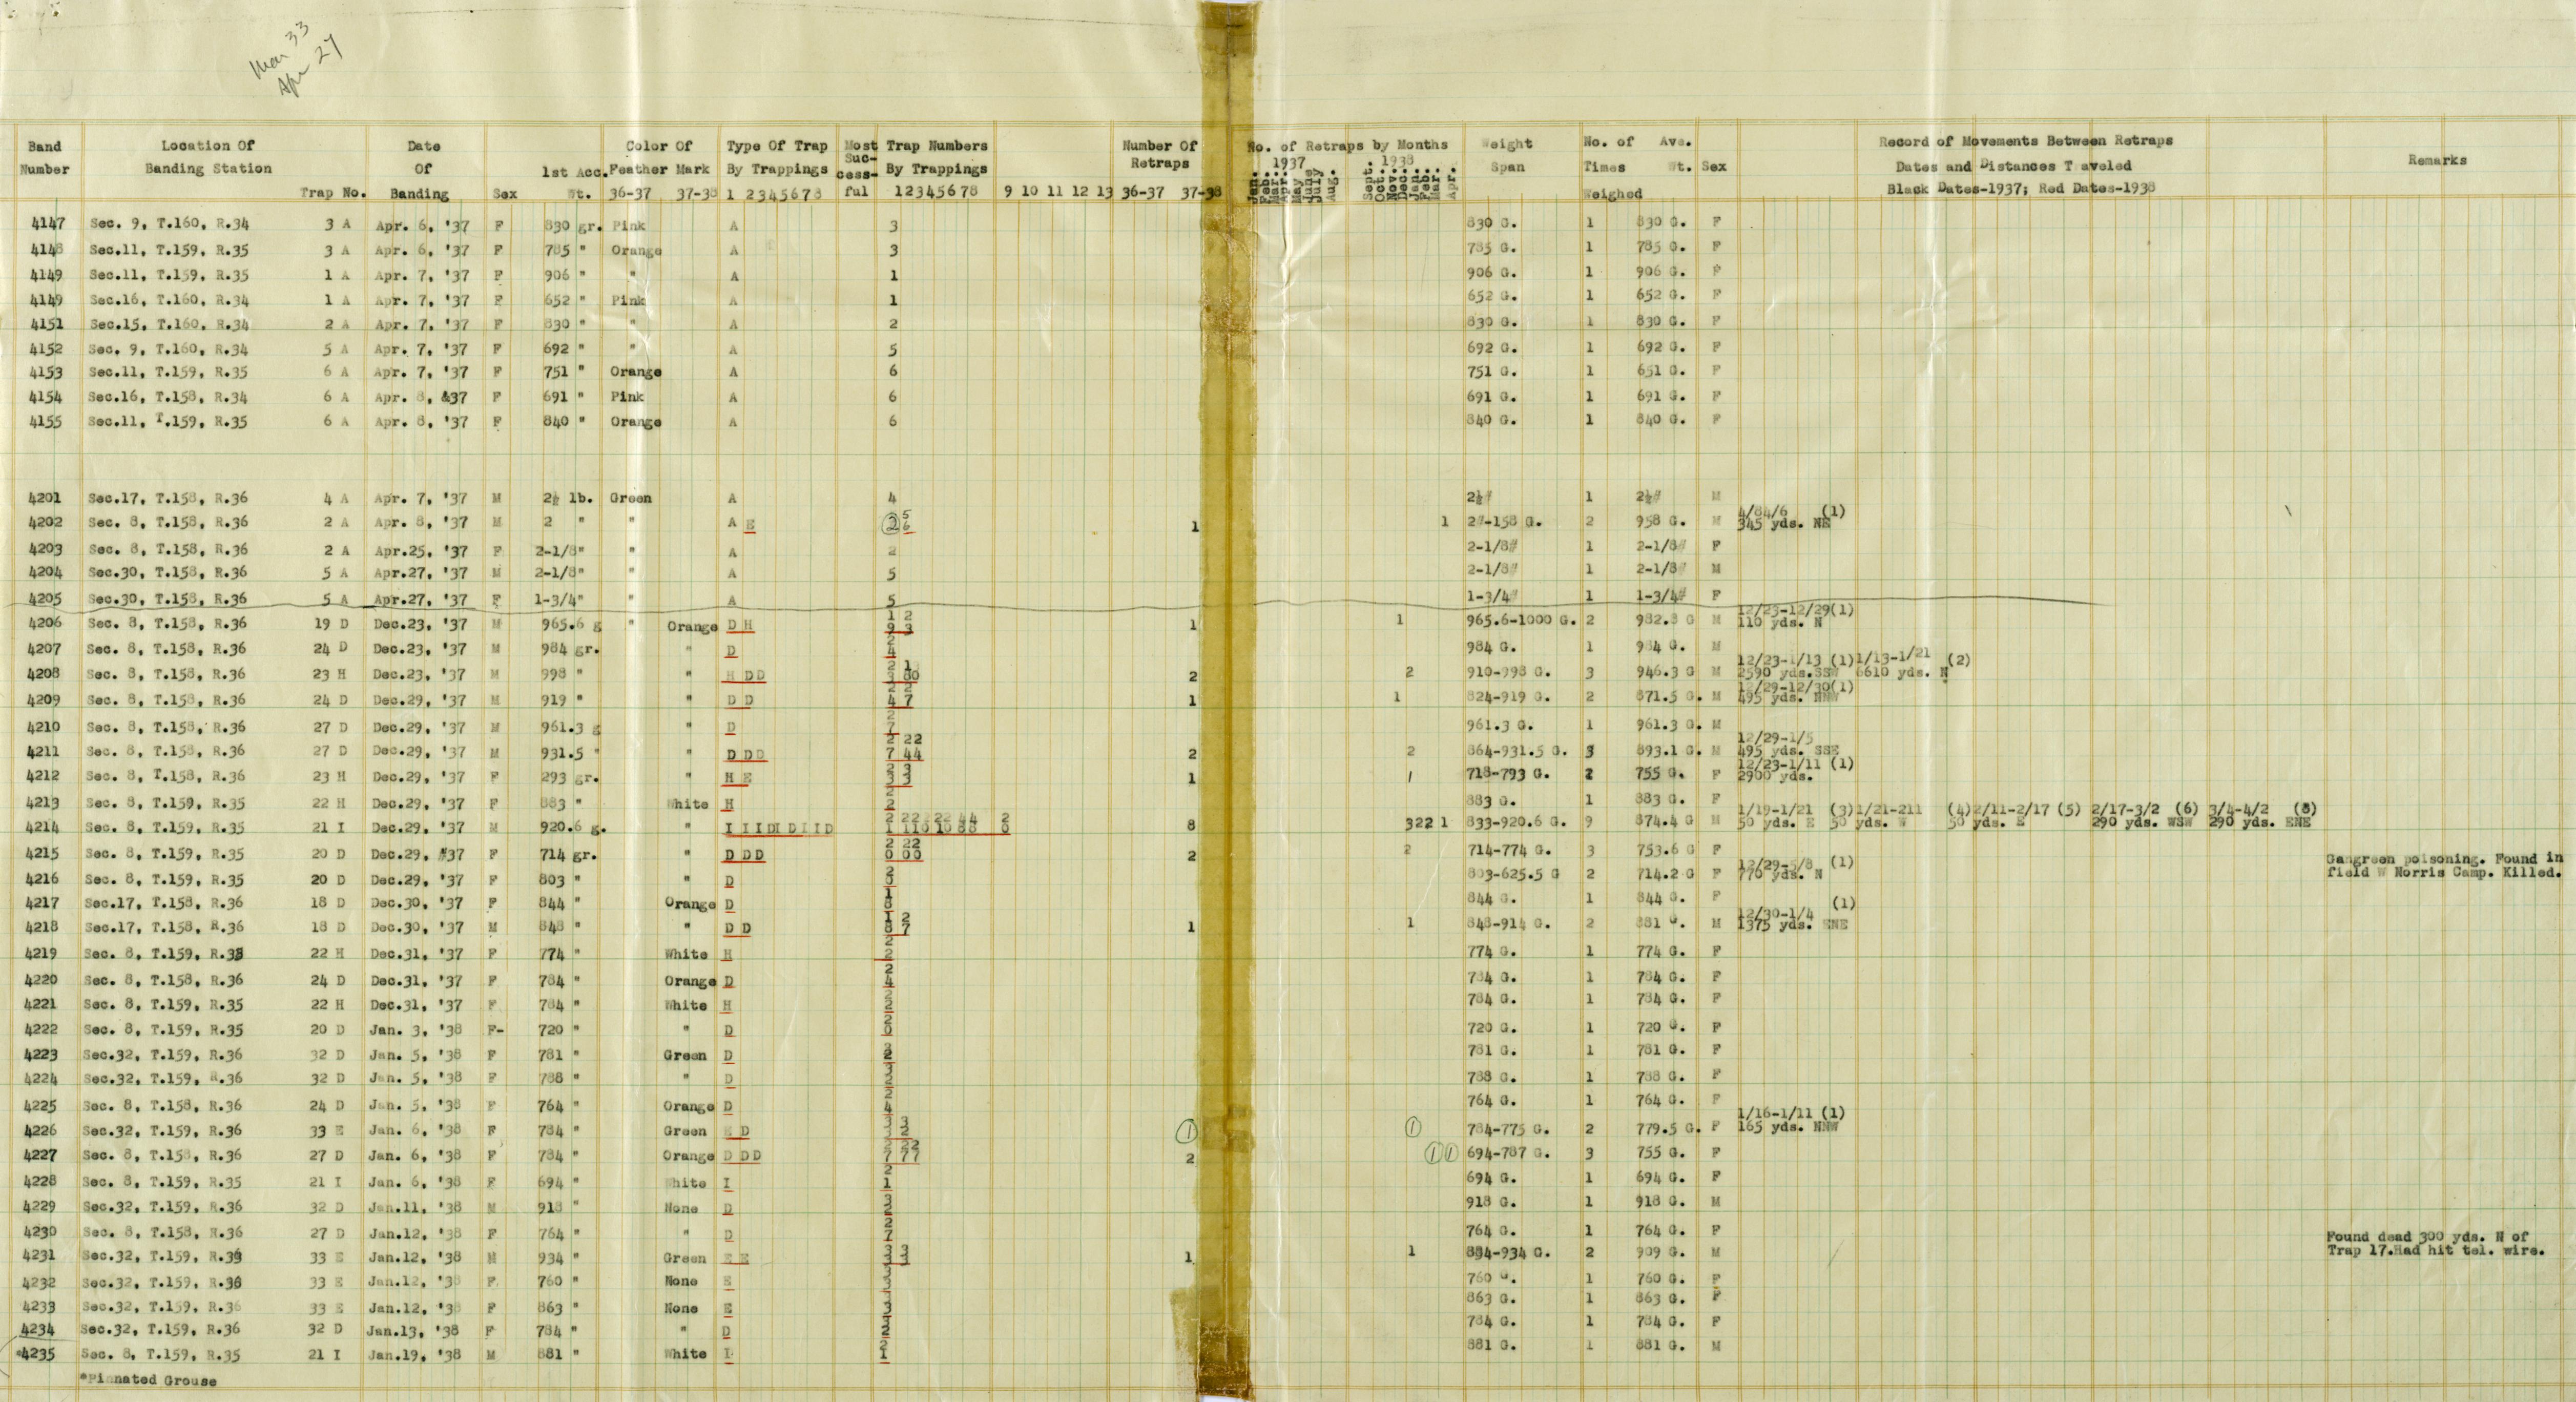 Mar 33
Apr 27
Band Number | Location Of Banding Station | Trap No. | Date Of Banding | Sex | 1st Acc. Wt. | Color Of Feather Mark 36-37 37-38 | Type Of Trap By Trappings 1 2345678 | Most Suc-cess-ful | Trap Numbers By Trappings 12345678 9 10 11 12 13 | Number Of Retraps 36-37 37-38 | No. of Retraps by Months 1937 Jan. Feb. Mar. Apr. May June July Aug. 1938 Sept. Oct. Nov. Dec. Jan. Feb. Mar. Apr. | Weight Span | No. of Times Weighed | Ave. Wt. | Sex | Record of Movements Between Retraps Dates and Distances T aveled Black Dates-1937; Red Dates-1938 | Remarks
4147 Sec. 9, T.160, R.34 3 A Apr. 6, '37 F 830 gr. Pink A 3 830 G. 1 830 G. F
4148 Sec.11, T.159, R.35 3 A Apr. 6, '37 F 785 " Orange A 3 785 G. 1 785 G. F
4149 Sec.11, T.159, R.35 1 A Apr. 7, '37 F 906 " " A 1 906 G. 1 906 G. F
4149 Sec.16, T.160, R.34 1 A Apr. 7, '37 F 652 " Pink A 1 652 G. 1 652 G. F
4151 Sec.15, T.160, R.34 2 A Apr. 7, '37 F 830 " " A 2 830 G. 1 830 G. F
4152 Sec. 9, T.160, R.34 5 A Apr. 7, '37 F 692 " " A 5 692 G. 1 692 G. F
4153 Sec.11, T.159, R.35 6 A Apr. 7, '37 F 751 " Orange A 6 751 G. 1 651 G. F
4154 Sec.16, T.158, R.34 6 A Apr. 8, &37 F 691 " Pink A 6 691 G. 1 691 G. F
4155 Sec.11, T.159, R.35 6 A Apr. 8, '37 F 840 " Orange A 6 840 G. 1 840 G. F
4201 Sec.17, T.158, R.36 4 A Apr. 7, '37 M 2½ lb. Green A 4 2½# 1 2½# M
4202 Sec. 8, T.158, R.36 2 A Apr. 8, '37 M 2 " " A E 2 56 1 1 2#-158 G. 2 958 G. M 4/84/6 (1) 345 yds. NE
4203 Sec. 8, T.158, R.36 2 A Apr.25, '37 F 2-1/8" " A 2 2-1/8# 1 2-1/8# F
4204 Sec.30, T.158, R.36 5 A Apr.27, '37 M 2-1/8" " A 5 2-1/8# 1 2-1/8# M
4205 Sec.30, T.158, R.36 5 A Apr.27, '37 F 1-3/4" " A 5 1-3/4# 1 1-3/4# F
4206 Sec. 8, T.158, R.36 19 D Dec.23, '37 M 965.6 g " Orange D H 19 23 1 1 965.6-1000 G. 2 982.8 G M 12/23-12/29(1) 110 yds. N
4207 Sec. 8, T.158, R.36 24 D Dec.23, '37 M 984 gr. " D 24 984 G. 1 984 G. M
4208 Sec. 8, T.158, R.36 23 H Dec.23, '37 M 998 " " H DD 2 2 910-998 G. 3 946.3 G M 12/23-1/13 (1)1/13-1/21 (2) 2590 yds.SSW 6610 yds. N
4209 Sec. 8, T.158, R.36 24 D Dec.29, '37 M 919 " " D D 24 27 1 1 824-919 G. 2 871.5 G. M 12/29-12/30(1) 495 yds. NNW
4210 Sec. 8, T.158, R.36 27 D Dec.29, '37 M 961.3 g " D 27 961.3 G. 1 961.3 G. M
4211 Sec. 8, T.158, R.36 27 D Dec.29, '37 M 931.5 " " D DD 27 24 24 2 2 864-931.5 G. 3 893.1 G. M 12/29-1/5 495 yds. SSE
4212 Sec. 8, T.158, R.36 23 H Dec.29, '37 F 293 gr. " H E 23 33 1 1 718-793 G. 2 755 G. F 12/23-1/11 (1) 2900 yds.
4213 Sec. 8, T.159, R.35 22 H Dec.29, '37 F 883 " White H 22 883 G. 1 883 G. F
4214 Sec. 8, T.159, R.35 21 I Dec.29, '37 M 920.6 g. " I IIDIDIID 8 322 1 833-920.6 G. 9 874.4 G M 1/19-1/21 (3)1/21-211 (4)2/11-2/17 (5) 2/17-3/2 (6) 3/4-4/2 (8) 50 yds. E 50 yds. W 50 yds. E 290 yds. WSW 290 yds. ENE
4215 Sec. 8, T.159, R.35 20 D Dec.29, #37 F 714 gr. " D DD 20 20 20 2 2 714-774 G. 3 753.6 G F
4216 Sec. 8, T.159, R.35 20 D Dec.29, '37 F 803 " " D 20 803-625.5 G 2 714.2 G F 12/29-5/8 (1) 770 yds. N Gangreen poisoning. Found in field W Norris Camp. Killed.
4217 Sec.17, T.158, R.36 18 D Dec.30, '37 F 844 " Orange D 18 844 G. 1 844 G. F
4218 Sec.17, T.158, R.36 18 D Dec.30, '37 M 848 " " D D 18 27 1 1 848-914 G. 2 881 G. M 12/30-1/4 (1) 1375 yds. ENE
4219 Sec. 8, T.159, R.35 22 H Dec.31, '37 F 774 " White H 22 774 G. 1 774 G. F
4220 Sec. 8, T.158, R.36 24 D Dec.31, '37 F 784 " Orange D 24 784 G. 1 784 G. F
4221 Sec. 8, T.159, R.35 22 H Dec.31, '37 F 784 " White H 22 784 G. 1 784 G. F
4222 Sec. 8, T.159, R.35 20 D Jan. 3, '38 F- 720 " " D 20 720 G. 1 720 G. F
4223 Sec.32, T.159, R.36 32 D Jan. 5, '38 F 781 " Green D 32 781 G. 1 781 G. F
4224 Sec.32, T.159, R.36 32 D Jan. 5, '38 F 788 " " D 32 788 G. 1 788 G. F
4225 Sec. 8, T.158, R.36 24 D Jan. 5, '38 F 764 " Orange D 24 764 G. 1 764 G. F
4226 Sec.32, T.159, R.36 33 E Jan. 6, '38 F 784 " Green E D 33 32 1 1 784-775 G. 2 779.5 G. F 1/16-1/11 (1) 165 yds. NNW
4227 Sec. 8, T.158, R.36 27 D Jan. 6, '38 F 784 " Orange D DD 27 27 27 2 1 1 694-787 G. 3 755 G. F
4228 Sec. 8, T.159, R.35 21 I Jan. 6, '38 F 694 " White I 21 694 G. 1 694 G. F
4229 Sec.32, T.159, R.36 32 D Jan.11, '38 M 918 " None D 32 918 G. 1 918 G. M
4230 Sec. 8, T.158, R.36 27 D Jan.12, '38 F 764 " " D 27 764 G. 1 764 G. F
4231 Sec.32, T.159, R.36 33 E Jan.12, '38 M 934 " Green E E 33 33 1 1 884-934 G. 2 909 G. M Found dead 300 yds. N of Trap 17.Had hit tel. wire.
4232 Sec.32, T.159, R.36 33 E Jan.12, '38 F 760 " None E 33 760 G. 1 760 G. F
4233 Sec.32, T.159, R.36 33 E Jan.12, '38 F 863 " None E 33 863 G. 1 863 G. F
4234 Sec.32, T.159, R.36 32 D Jan.13, '38 F 784 " " D 32 784 G. 1 784 G. F
*4235 Sec. 8, T.159, R.35 21 I Jan.19, '38 M 881 " White I 21 881 G. 1 881 G. M
*Pinnated Grouse